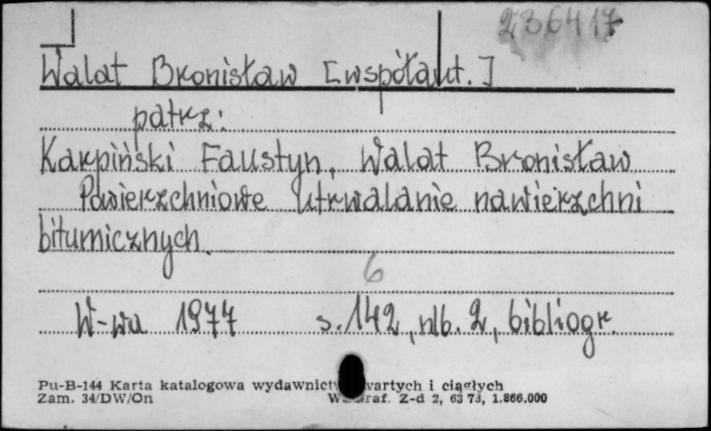 236417
Walat Bronisław [współaut.]
patrz:
Karpiński Faustyn, Walat Bronisław
Powierzchniowe utrwalanie nawierzchni
bitumicznych.
6
W-wa 1977 s. 142, nlb. 2, bibliogr.
Pu-B-144 Karta katalogowa wydawnict wartych i ciągłych
Zam. 34/DW/On Graf. Z-d 2, 63 73, 1.866.000